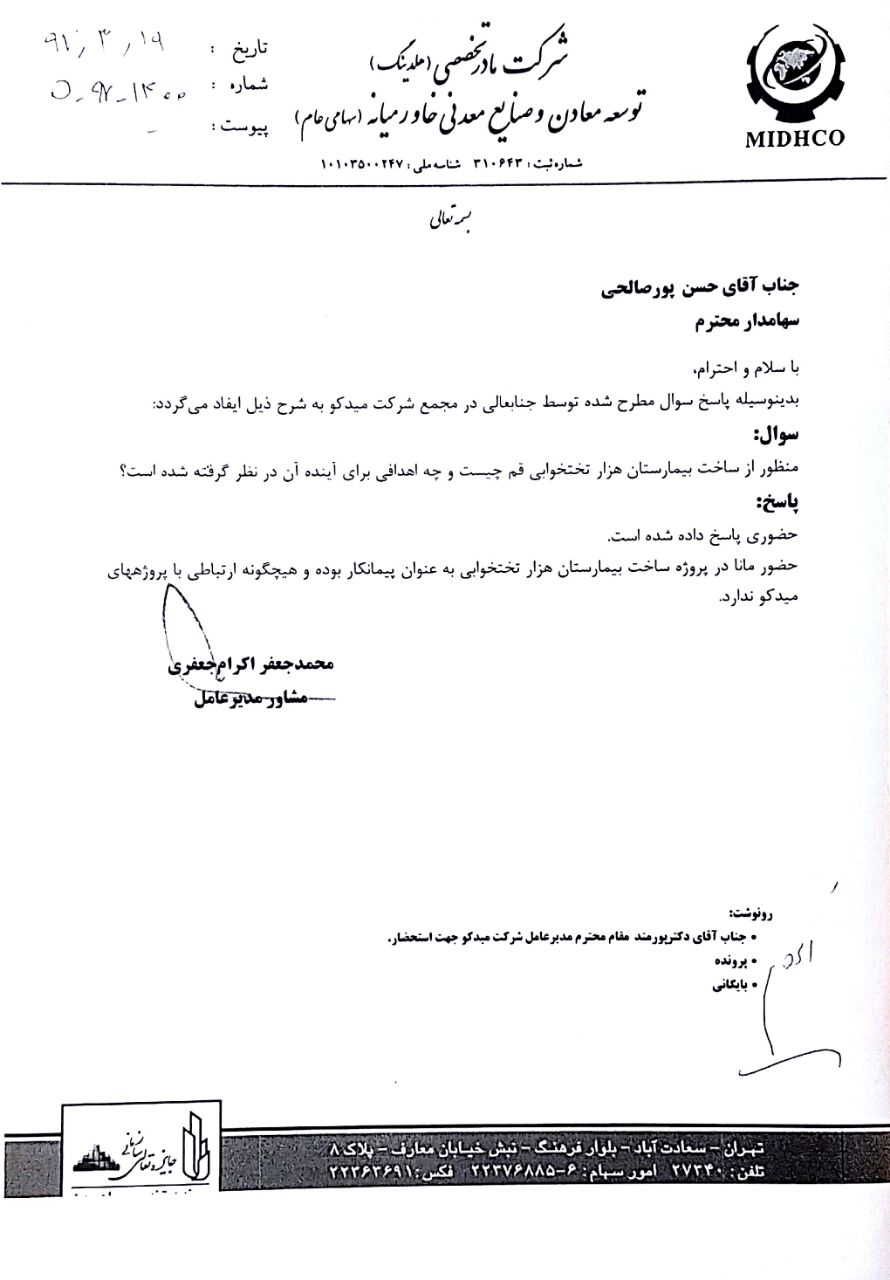 شرکت مادر تخصصی (هلدینگ)
توسعه معادن و صنایع معدنی خاورمیانه (سهامی عام)
شماره ثبت: ۳۱۰۶۴۳ شناسه ملی: ۱۰۱۰۳۵۰۰۲۴۷
MIDHCO
تاریخ :
شماره :
پیوست : -
بسمه تعالی
جناب آقای حسن پورصالحی
سهامدار محترم
با سلام و احترام،
بدینوسیله پاسخ سوال مطرح شده توسط جنابعالی در مجمع شرکت میدکو به شرح ذیل ایفاد می‌گردد:
سوال:
منظور از ساخت بیمارستان هزار تختخوابی قم چیست و چه اهدافی برای آینده آن در نظر گرفته شده است؟
پاسخ:
حضوری پاسخ داده شده است.
حضور مانا در پروژه ساخت بیمارستان هزار تختخوابی به عنوان پیمانکار بوده و هیچگونه ارتباطی با پروژه‎های
میدکو ندارد.
محمدجعفر اکرام‌جعفری
مشاور مدیرعامل
رونوشت:
• جناب آقای دکترپورمند مقام محترم مدیرعامل شرکت میدکو جهت استحضار.
• پرونده
• بایگانی
تهران - سعادت آباد - بلوار فرهنگ - نبش خیابان معارف - پلاک ۸
تلفن: ۲۷۳۴۰ امور سهام: ۶-۲۲۳۷۶۸۸۵ فکس: ۲۲۳۶۳۶۹۱